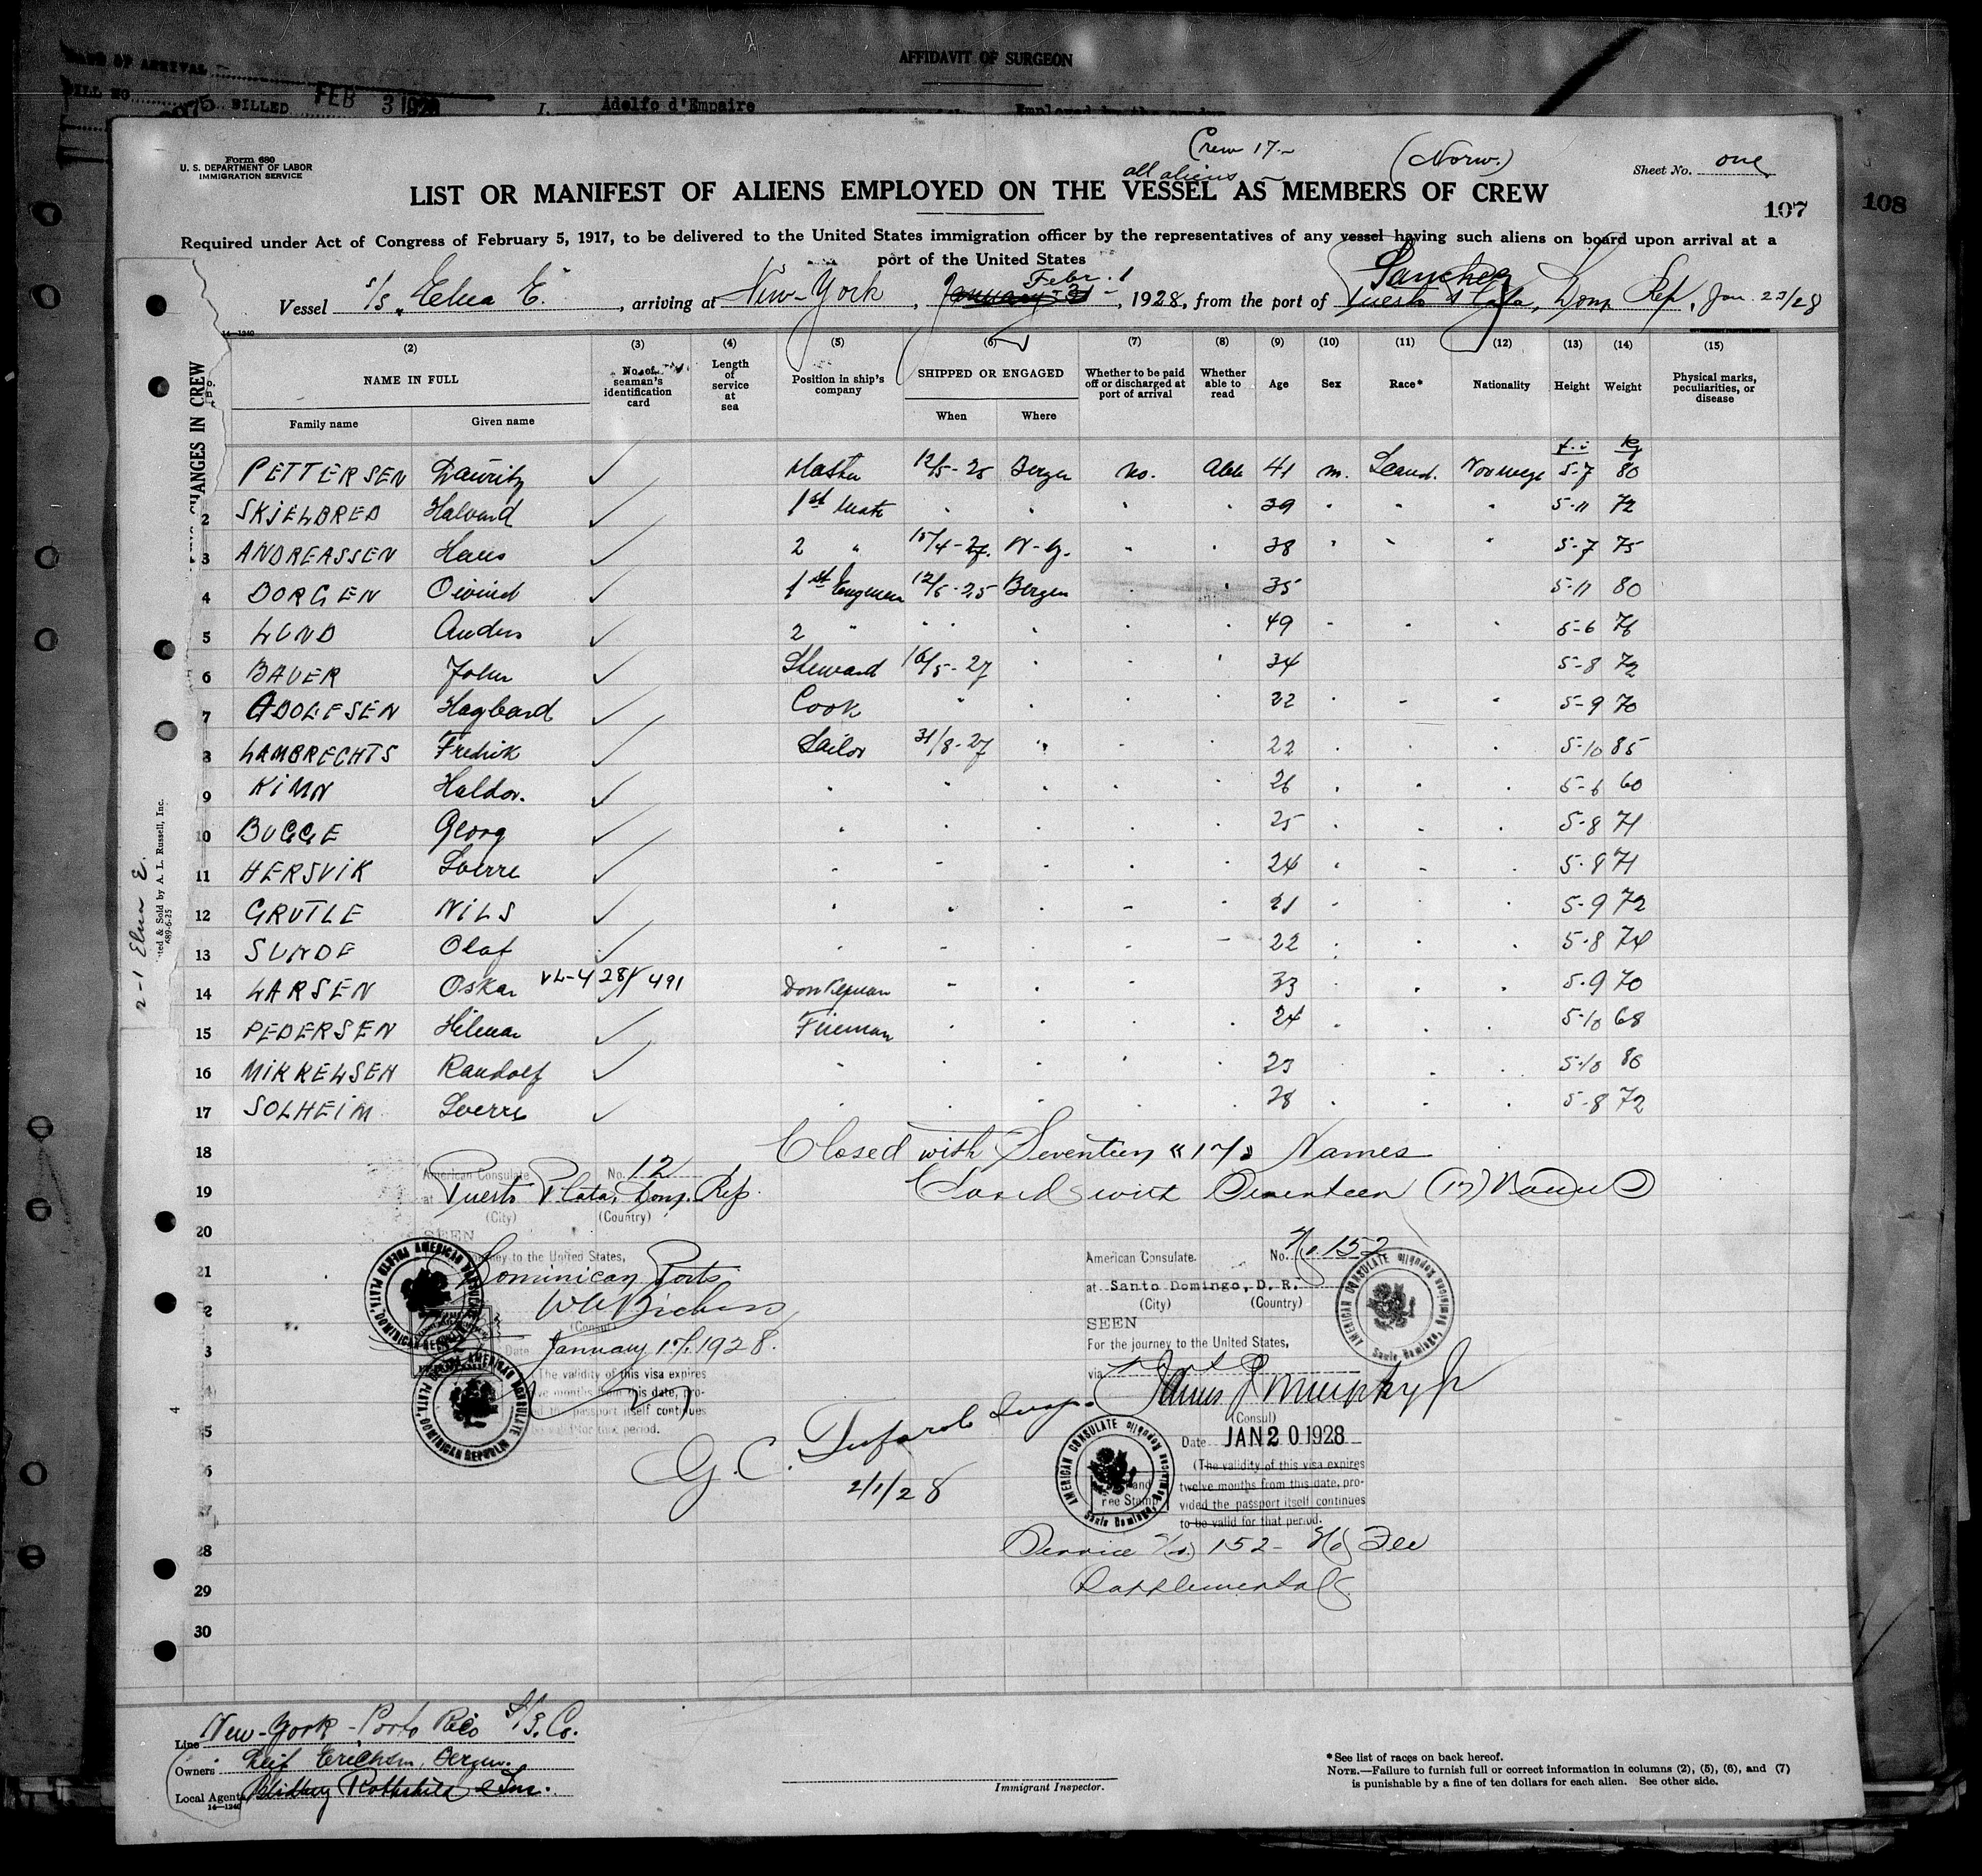 AFFIDAVIT OF SURGEON
DATE OF ARRIVAL
BILL NO. BILLED FEB 3 1928
I, Adolfo d'Empaire
Form 680
U. S. DEPARTMENT OF LABOR
IMMIGRATION SERVICE
Crew 17.-
all aliens -
(Norw.)
Sheet No. one
LIST OR MANIFEST OF ALIENS EMPLOYED ON THE VESSEL AS MEMBERS OF CREW
107
108
Required under Act of Congress of February 5, 1917, to be delivered to the United States immigration officer by the representatives of any vessel having such aliens on board upon arrival at a
port of the United States
Febr. 1
Sanchez
Vessel s/s "Elna E." , arriving at New-York , January 31 - , 1928, from the port of Puerto Plata, Dom. Rep., Jan. 23/28
14-1240
CHANGES IN CREW
(2) (3) (4) (5) (6) (7) (8) (9) (10) (11) (12) (13) (14) (15)
NAME IN FULL
Family name Given name
No. of seaman's identification card
Length of service at sea
Position in ship's company
SHIPPED OR ENGAGED
When Where
Whether to be paid off or discharged at port of arrival
Whether able to read
Age Sex Race* Nationality Height Weight
Physical marks, peculiarities, or disease
f. i Kg
PETTERSEN Lauritz ✓ Master 12/5-25 Bergen No. Able 41 m. Scand. Norwege 5-7 80
2 SKJELBRED Halvard ✓ 1st Mate " " " " 39 " " " 5-11 72
3 ANDREASSEN Hans ✓ 2 " 15/4-27. N-Y. " " 38 " " " 5-7 75
4 BORGEN Oivind ✓ 1st Engineer 12/5-25 Bergen " " 35 5-11 80
5 LUND Anders ✓ 2 " " " " " 49 " " " 5-6 76
6 BAUER John ✓ Steward 16/5-27 " " " 34 5-8 72
7 ADOLFSEN Hagbard ✓ Cook " " " " 22 " " " 5-9 70
8 LAMBRECHTS Fredrik ✓ Sailor 31/8-27 " " " 22 " " " 5-10 85
9 KIMN Haldor. ✓ " " " " " 26 " " " 5-6 60
10 BUGGE Georg ✓ " " " " " 25 " " " 5-8 71
11 HERSVIK Sverre ✓ " " " " " 24 " " " 5-8 71
12 GRUTLE NILS ✓ " " " " " 21 " " " 5-9 72
13 SUNDE Olaf ✓ " " " " " 22 " " " 5-8 74
14 LARSEN Oskar VL-4 28/491 Donkeyman " " " 33 " " " 5-9 70
15 PEDERSEN Hilmar ✓ Fireman " " " " 24 " " " 5-10 68
16 MIKKELSEN Randolf ✓ " " " " " 23 " " " 5-10 80
17 SOLHEIM Sverre ✓ " " " " " 28 " " " 5-8 72
18 Closed with Seventeen "17" Names
19 Closed with Seventeen (17) Names
20
21
28
29
30
American Consulate No. 12
at Puerto Plata, Dom. Rep.
(City) (Country)
SEEN
journey to the United States,
Dominican Ports
(Consul)
Date January 17/1928.
The validity of this visa expires
twelve months from this date, pro-
vided the passport itself continues
to be valid for that period.
AMERICAN CONSULATE PUERTO PLATA, DOMINICAN REPUBLIC
AMERICAN CONSULATE PUERTO PLATA, DOMINICAN REPUBLIC
American Consulate. No. No. 152
at Santo Domingo, D. R.
(City) (Country)
SEEN
For the journey to the United States,
via
James J Murphy Jr
(Consul)
Date JAN 20 1928
(The validity of this visa expires
twelve months from this date, pro-
vided the passport itself continues
to be valid for that period.
AMERICAN CONSULATE Santo Domingo, Dominican Republic
AMERICAN CONSULATE Santo Domingo, Dominican Republic
Service No. 152 - No Fee
Supplemental
G. C. Insp.
2/1/28
2-1 Elna E.
& Sold by A. L. Russell, Inc.
689-6-25
Line New-York - Porto Rico S/S. Co.
Owners Leif Erichsen, Bergen.
Local Agents
14-1240
Immigrant Inspector.
*See list of races on back hereof.
NOTE.—Failure to furnish full or correct information in columns (2), (5), (6), and (7)
is punishable by a fine of ten dollars for each alien. See other side.